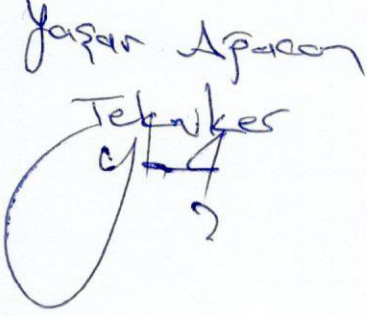 Yaşar Apacan
Tekniker